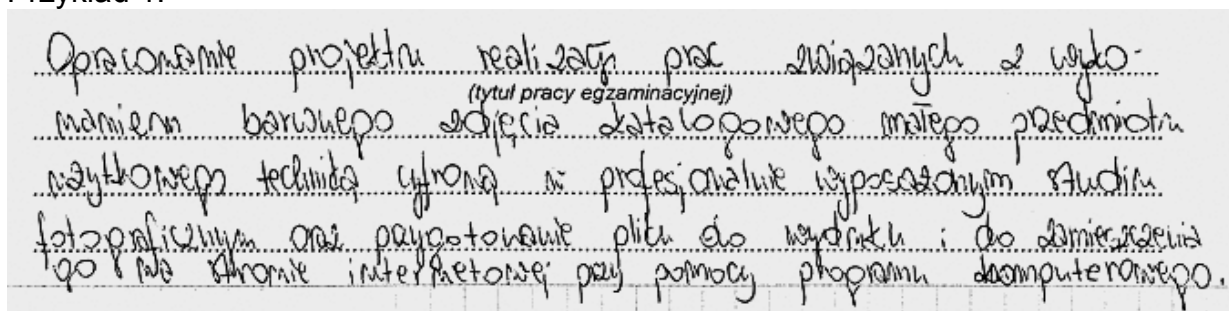 Przykład 1.
Opracowanie projektu realizacji prac związanych z wyko-
(tytuł pracy egzaminacyjnej)
naniem barwnego zdjęcia katalogowego małego przedmiotu
użytkowego techniką cyfrową w profesjonalnie wyposażonym studiu
fotograficznym oraz przygotowanie pliku do wydruku i do zamieszczenia
go na stronie internetowej przy pomocy programu komputerowego.